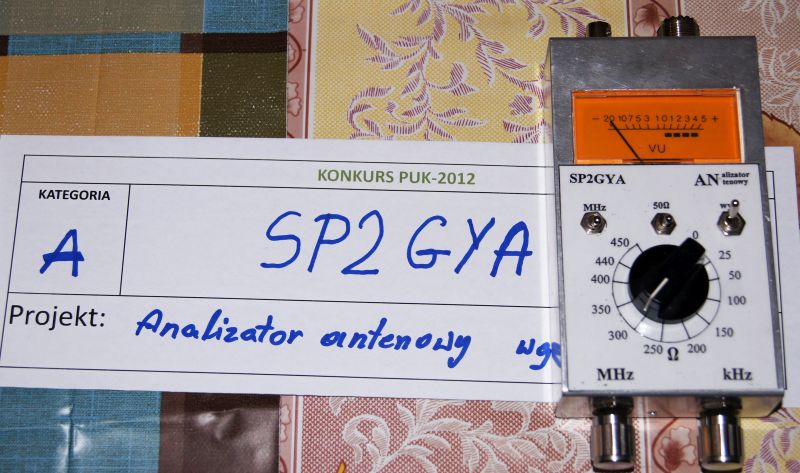 KONKURS PUK-2012
KATEGORIA
A
SP2GYA
Projekt:
Analizator antenowy
- 20 10 7 5 3 0 1 0 1 2 3 4 5 +
VU
SP2GYA
ANalizator
tenowy
MHz
50Ω
0
25
50
100
150
200
250
300
350
400
440
450
Ω
MHz
kHz